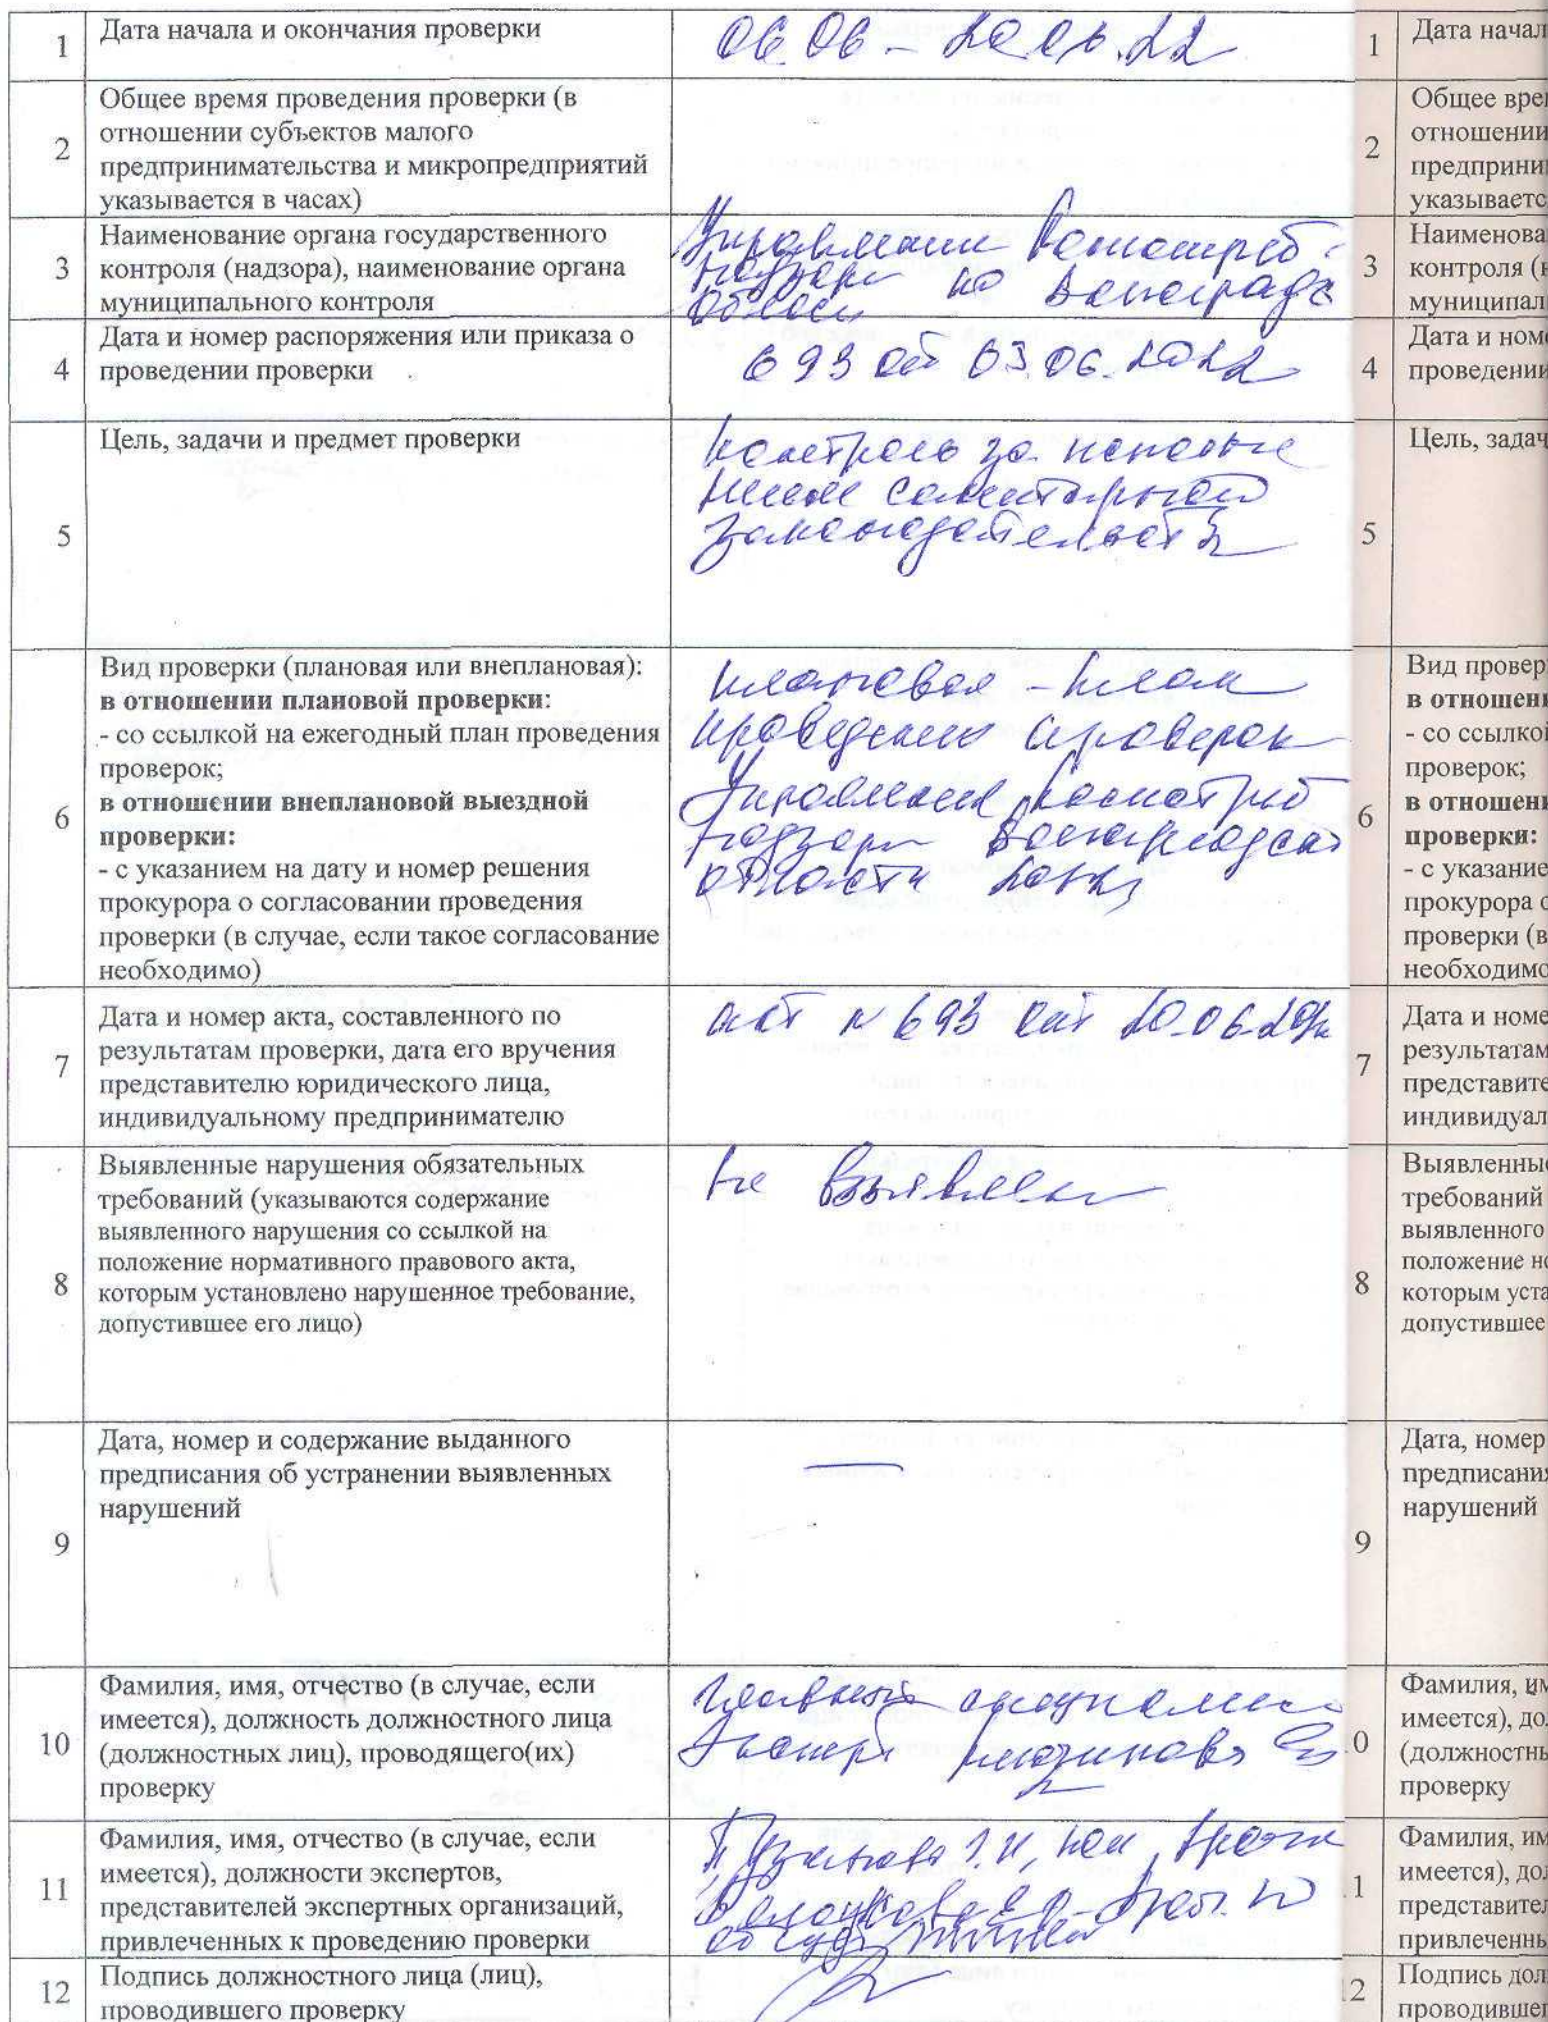 1
Дата начала и окончания проверки
06.06 - 20.06.22
2
Общее время проведения проверки (в
отношении субъектов малого
предпринимательства и микропредприятий
указывается в часах)
3
Наименование органа государственного
контроля (надзора), наименование органа
муниципального контроля
Управлении Роспотреб-
надзора по Волгоградс
области
4
Дата и номер распоряжения или приказа о
проведении проверки
693 от 03.06.2022
5
Цель, задачи и предмет проверки
контроль за исполне
нием санитарного
законодательства
6
Вид проверки (плановая или внеплановая):
в отношении плановой проверки:
- со ссылкой на ежегодный план проведения
проверок;
в отношении внеплановой выездной
проверки:
- с указанием на дату и номер решения
прокурора о согласовании проведения
проверки (в случае, если такое согласование
необходимо)
плановая - план
проведения проверок
Управления Роспотреб
надзора Волгоградской
области
7
Дата и номер акта, составленного по
результатам проверки, дата его вручения
представителю юридического лица,
индивидуальному предпринимателю
акт N 693 от 20.06.2022
8
Выявленные нарушения обязательных
требований (указываются содержание
выявленного нарушения со ссылкой на
положение нормативного правового акта,
которым установлено нарушенное требование,
допустившее его лицо)
не выявлены
9
Дата, номер и содержание выданного
предписания об устранении выявленных
нарушений
—
10
Фамилия, имя, отчество (в случае, если
имеется), должность должностного лица
(должностных лиц), проводящего(их)
проверку
главный специалис
эксперт
11
Фамилия, имя, отчество (в случае, если
имеется), должности экспертов,
представителей экспертных организаций,
привлеченных к проведению проверки
пом. врача
12
Подпись должностного лица (лиц),
проводившего проверку
1
Дата начал
2
Общее вре
отношении
предприни
указываетс
3
Наименова
контроля (н
муниципал
4
Дата и ном
проведении
5
Цель, задач
6
Вид провер
в отношени
- со ссылкой
проверок;
в отношени
проверки:
- с указание
прокурора о
проверки (в
необходимо
7
Дата и номе
результатам
представите
индивидуал
8
Выявленные
требований
выявленного
положение но
которым уста
допустившее
9
Дата, номер
предписания
нарушений
0
Фамилия, им
имеется), до
(должностны
проверку
1
Фамилия, им
имеется), до
представител
привлеченны
2
Подпись дол
проводившег